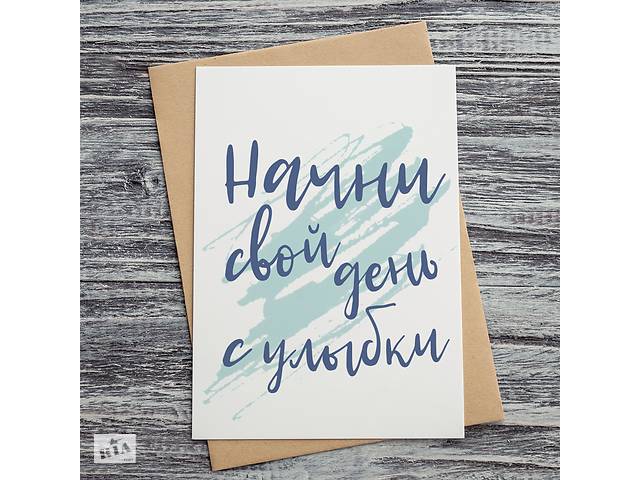 Начни
свой день
с улыбки
RIA